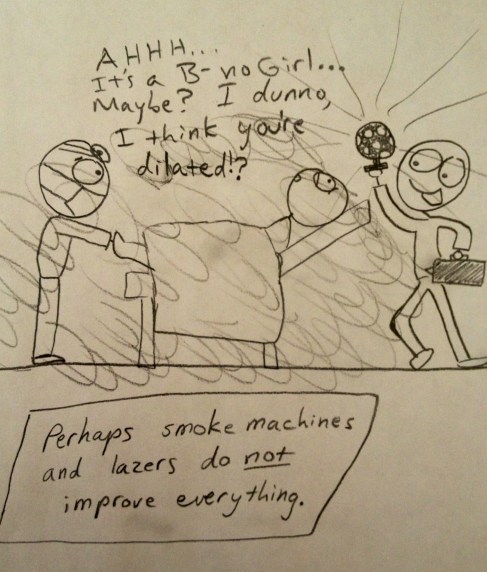 AHHH...
It's a B- no Girl...
Maybe? I dunno,
I think you're
dilated!?
Perhaps smoke machines
and lazers do not
improve everything.